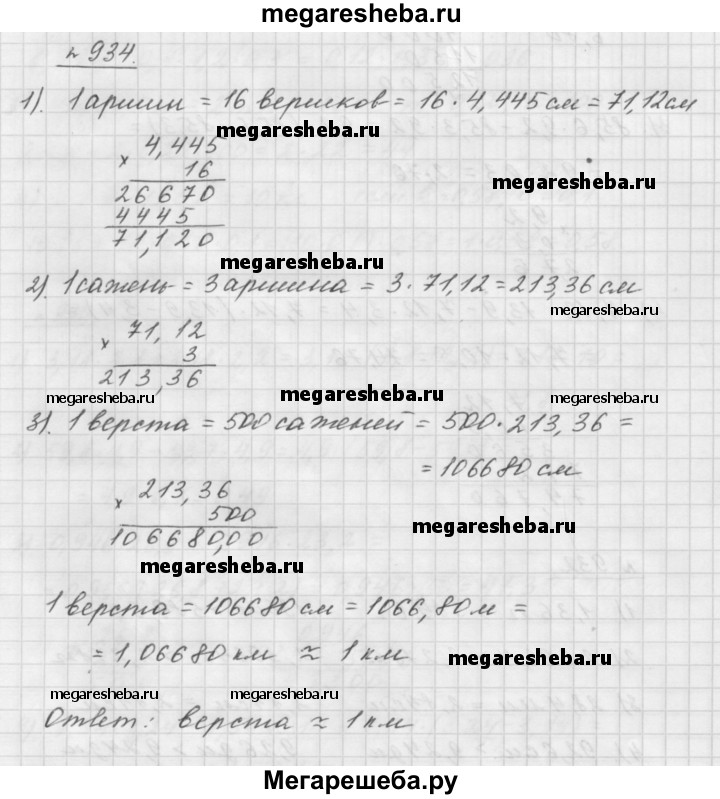 megaresheba.ru
№ 934.
1). 1 аршин = 16 вершков = 16 · 4,445 см = 71,12 см
megaresheba.ru
× 4,445
16
megaresheba.ru
26670
4445
71,120
megaresheba.ru
2). 1 сажень = 3 аршина = 3 · 71,12 = 213,36 см
megaresheba.ru
× 71,12
3
213,36
megaresheba.ru
megaresheba.ru
megaresheba.ru
3). 1 верста = 500 саженей = 500 · 213,36 =
= 106680 см
× 213,36
500
megaresheba.ru
106680,00
megaresheba.ru
1 верста = 106680 см = 1066,80 м =
= 1,06680 км ≈ 1 км
megaresheba.ru
megaresheba.ru
megaresheba.ru
Ответ: верста ≈ 1 км
Мегарешеба.ру